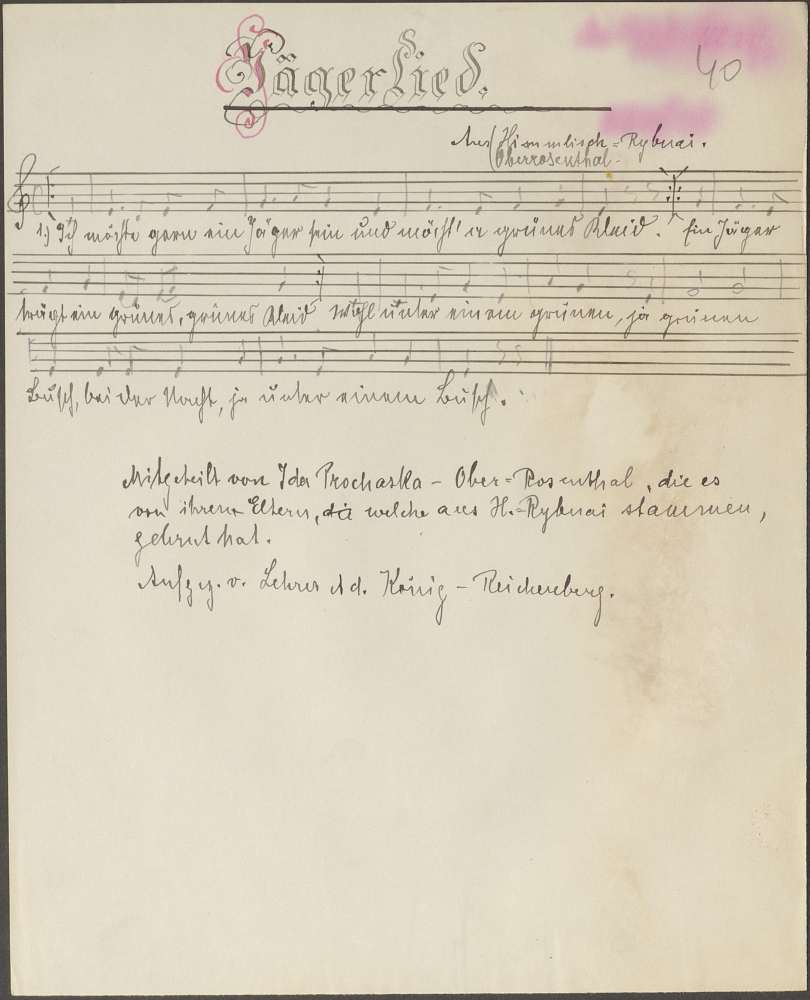 JägerLied.
40
Aus Himmlisch=Rybnai.
Oberrosenthal.
1.) Ich möchte gern ein Jäger sein und möcht' a grünes Kleid. Ein Jäger
trägt ein grünes, grünes Kleid Wohl unter einem grünen, ja grünen
Busch, bei der Nacht, ja unter einem Busch.
Mitgeteilt von Ida Prochaska - Ober=Rosenthal, die es
von ihren Eltern, die welche aus H.=Rybnai stammen,
gelernt hat.
Aufgez. v. Lehrer Ad. König - Reichenberg.